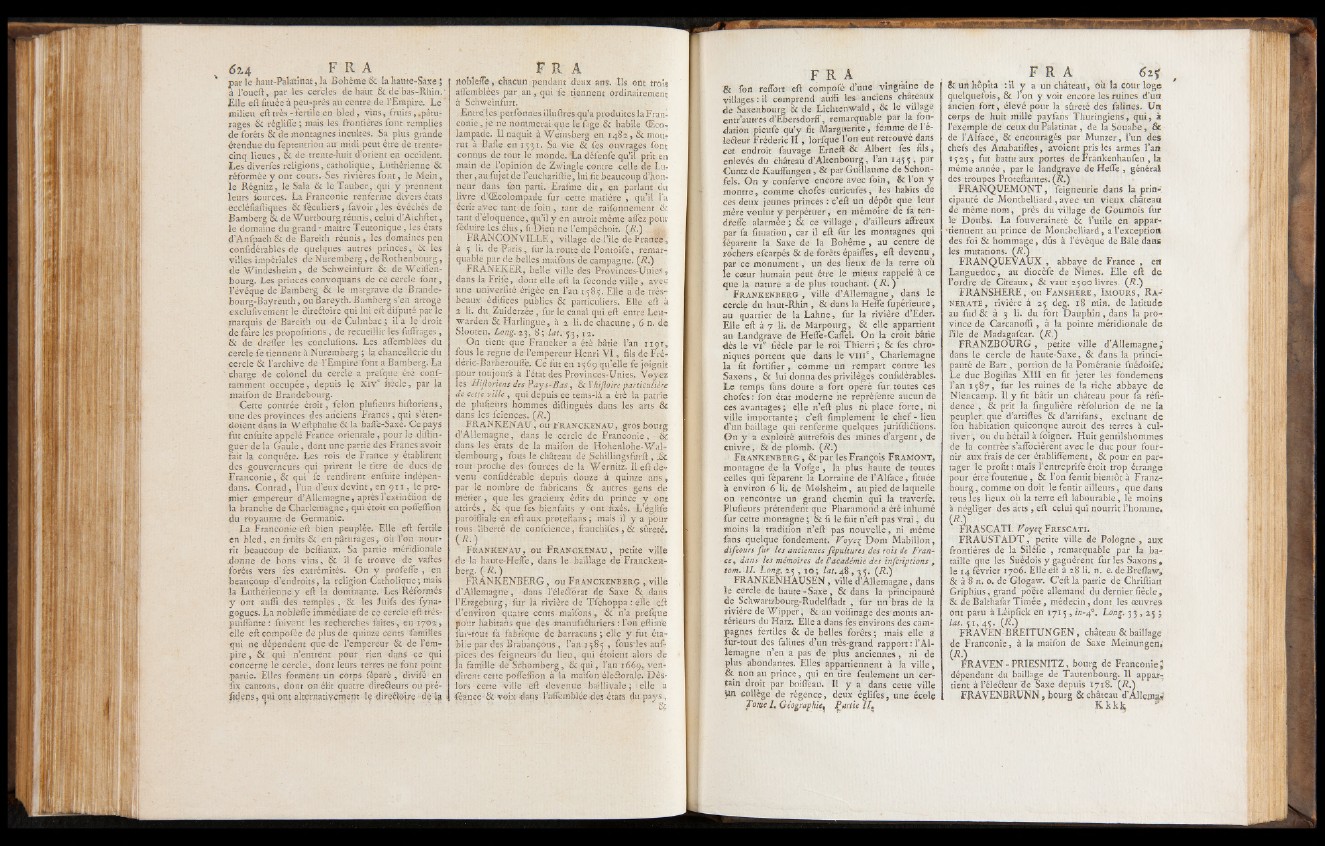 624 F R A
par le haut-Palatinat, la Bohême & la haute-Saxe ;
à l'ouest, par les cercles de haut & de bas-Rhin.
Elle est située à peu-près au centre de l'Empire. Le
milieu est très-fertile en bled, vins, fruits, pâtu-
rages & réglisse ; mais les frontières sont remplies
de forêts & de montagnes incultes. Sa plus grande
étendue du septentrion au midi peut être de trente-
cinq lieues, & de trente-huit d'orient en occident.
Les diverses religions, catholique, Luthérienne &
réformée y ont cours. Ses rivières sont, le Mein,
le Régnitz, le Sala & le Tauber, qui y prennent
leurs sources. La Franconie renferme divers états
ecclésiastiques & séculiers, savoir, les évêchés de
Bamberg & de Wurtbourg réunis, celui d'Aichstet,
le domaine du grand-maître Teutonique, les états
d'Anspach & de Bareith réunis, les domaines peu
considérables de quelques autres princes, & les
villes impériales de Nuremberg, de Rothenbourg,
de Windesheim, de Schweinfurt & de Weissen-
bourg. Les princes convoquans de ce cercle sont,
l'évêque de Bamberg & le margrave de Brande-
bourg-Bayreuth, ou Bareyth. Bamberg s'en arroge
exclusivement le directoire qui lui est disputé par le
marquis de Bareith ou de Culmbac ; il a le droit
de faire les propositions, de recueillir les suffrages,
& de dresser les conclusions. Les assemblées du
cercle se tiennent à Nuremberg ; la chancellerie du
cercle & l'archive de l'Empire sont à Bamberg. La
charge de colonel du cercle a presque été cons-
tamment occupée, depuis le XIVe siècle, par la
maison de Brandebourg.
Cette contrée étoit, selon plusieurs historiens,
une des provinces des anciens Francs, qui s'éten-
doient dans la Westphalie & la basse-Saxe. Ce pays
fut ensuite appelé France orientale, pour la distin-
guer de la Gaule, dont une partie des Francs avoit
fait la conquête. Les rois de France y établirent
des gouverneurs qui prirent le titre de ducs de
Franconie, & qui se rendirent ensuite indépen-
dans. Conrad, l'un d'eux devint, en 911, le pre-
mier empereur d'Allemagne, après l'extinction de
la branche de Charlemagne, qui étoit en possession
du royaume de Germanie.
La Franconie est bien peuplée. Elle est fertile
en bled, en fruits & en pâturages, où l'on nour-
rit beaucoup de bestiaux. Sa partie méridionale
donne de bons vins, & il se trouve de vastes
forêts vers ses extrémités. On y professe, en
beaucoup d'endroits, la religion Catholique ; mais
la Luthérienne y est la dominante. Les Réformés
y ont aussi des temples, & les Juifs des syna-
gogues. La noblesse immédiate de ce cercle est très-
puissante : suivant les recherches faites, en 1702,
elle est composée de plus de quinze cents familles
qui ne dépendent que de l'empereur & de l'em-
pire, & qui n'entrent pour rien dans ce qui
concerne le cercle, dont leurs terres ne font point
partie. Elles forment un corps séparé, divisé en
six cantons, dont on élit quatre directeurs ou pré-
sidens, qui ont alternativement le directoire de la
F R A
noblesse, chacun pendant deux ans. Ils ont trois
assemblées par an, qui se tiennent ordinairement
à Schweinfurt.
Entre les personnes illustres qu'a produites la Fran-
conie, je ne nommerai que le sage & habile Œco-
lampade. Il naquit à Weinsberg en 1482, & mou-
rut à Basle en 1531. Sa vie & ses ouvrages sont
connus de tout le monde. La défense qu'il prit en
main de l'opinion de Zwingle contre celle de Lu-
ther, au sujet de l'eucharistie, lui fit beaucoup d'hon-
neur dans son parti. Erasme dit, en parlant du
livre d'Œcolompade sur cette matière, qu'il l'a
écrit avec tant de soin, tant de raisonnement &
tant d'éloquence, qu'il y en auroit même assez pour
séduire les élus, si Dieu ne l'empêchoit. (R.)
FRANCONVILLE, village de l'île de France,
à 5 li. de Paris, sur la route de Pontoise, remar-
quable par de belles maisons de campagne. (R.)
FRANEKER, belle ville des Provinces-Unies,
dans la Frise, dont elle est la seconde ville, avec
une université érigée en l'an 1585. Elle a de très-
beaux édifices publics & particuliers. Elle est à
2 li. du Zuiderzée, sur le canal qui est entre Leu-
warden & Harlingue, à 2 li. de chacune, 6 n. de
Slooten. Long. 23, 8 ; lat. 53, 12.
On tient que Franeker a été bâtie l'an 1191,
sous le regne de l'empereur Henri VI, fils de Fré-
déric-Barberousse. Ce fut en 1569 qu'elle se joignit
pour toujours à l'état des Provinces-Unies. Voyez
les Historiens des Pays-Bas, & l'histoire particulière
de cette ville, qui depuis ce tems-là a été la patrie
de plusieurs hommes distingués dans les arts &
dans les sciences. (R.)
FRANKENAU, ou FRANCKENAU, gros bourg
d'Allemagne, dans le cercle de Franconie, &
dans les états de la maison de Hohenlohe-Wal-
dembourg, sous le château de Schillingsfurst, &
tout proche des sources de la Wernitz. Il est de-
venu considérable depuis douze à quinze ans,
par le nombre de fabricans & autres gens de
métier, que les gracieux édits du prince y ont
attirés, & que ses bienfaits y ont fixés. L'église
paroissiale en est aux protestans, mais il y a pour
tous liberté de conscience, franchises, & sûreté.
(R.)
FRANKENAU, ou FRANCKENAU, petite ville
de la haute-Hesse, dans le bailliage de Francken-
berg. (R.)
FRANKENBERG, ou FRANCKENBERG, ville
d'Allemagne, dans l'électorat de Saxe & dans
l'Erzgeburg, sur la rivière de Tschoppa : elle est
d'environ quatre cents maisons, & n'a presque
pour habitans que des manufacturiers : l'on estime
sur-tout sa fabrique de barracans ; elle y fut éta-
blie par des Brabançons, l'an 1585, sous les aus-
pices des seigneurs du lieu, qui étoient alors de
la famille de Schomberg, & qui, l'an 1669, ven-
dirent cette possession à la maison électorale. Dès-
lors cette ville est devenue baillivale ; elle a
séance & voix dans l'assemblée des états du pays,
&
F R A
& son ressort est composé d'une vingtaine de
villages : il comprend aussi les anciens châteaux
de Saxenbourg & de Lichtenwald, & le village
entr'autres d'Ebersdorff, remarquable par la fon-
dation pieuse qu'y fit Marguerite, femme de l'é-
lecteur Fréderic II, lorsque l'on eut retrouvé dans
cet endroit sauvage Ernest & Albert ses fils,
enlevés du château d'Altenbourg, l'an 1455, par
Cunz de Kauffungen, & par Guillaume de Schon-
fels. On y conserve encore avec soin, & l'on y
montre, comme choses curieuses, les habits de
ces deux jeunes princes : c'est un dépôt que leur
mère voulut y perpétuer, en mémoire de sa ten-
dresse alarmée ; & ce village, d'ailleurs affreux
par sa situation, car il est sur les montagnes qui
séparent la Saxe de la Bohême, au centre de
rochers escarpés & de forêts épaisses, est devenu,
par ce monument, un des lieux de la terre où
le cœur humain peut être le mieux rappelé à ce
que la nature a de plus touchant. (R.)
FRANKENBERG, ville d'Allemagne, dans le
cercle du haut-Rhin, & dans la Hesse supérieure,
au quartier de la Lahne, sur la rivière d'Eder.
Elle est à 7 li. de Marpourg, & elle appartient
au Landgrave de Hesse-Cassel. On la croit bâtie
dès le VIe siècle par le roi Thierri ; & ses chro-
niques portent que dans le VIIIe, Charlemagne
la fit fortifier, comme un rempart contre les
Saxons, & lui donna des privilèges considérables.
Le temps sans doute a fort opéré sur toutes ces
choses : son état moderne ne représente aucun de
ces avantages ; elle n'est plus ni place forte, ni
ville importante ; c'est simplement le chef-lieu
d'un baillage qui renferme quelques jurisdictions.
On y a exploité autrefois des mines d'argent, de
cuivre, & de plomb. (R.)
FRANKENBERG, & par les François FRAMONT,
montagne de la Vosge, la plus haute de toutes
celles qui séparent la Lorraine de l'Alsace, située
à environ 6 li. de Molsheim, au pied de laquelle
on rencontre un grand chemin qui la traverse.
Plusieurs prétendent que Pharamond a été inhumé
sur cette montagne ; & si le fait n'est pas vrai, du
moins la tradition n'est pas nouvelle, ni même
sans quelque fondement. Voyez Dom Mabillon,
discours sur les anciennes sépultures des rois de Fran-
ce, dans les mémoires de l'académie des inscriptions,
tom. II. Long. 25, 10 ; lat. 48, 35. (R.)
FRANKENHAUSEN, ville d'Allemagne, dans
le cercle de haute-Saxe, & dans la principauté
de Schwarzbourg-Rudelstadt, sur un bras de la
rivière de Wipper, & au voisinage des monts an-
térieurs du Harz. Elle a dans ses environs des cam-
pagnes fertiles & de belles forêts ; mais elle a
sur-tout des salines d'un très-grand rapport : l'Al-
lemagne n'en a pas de plus anciennes, ni de
plus abondantes. Elles appartiennent à la ville,
& non au prince, qui en tire seulement un cer-
tain droit par boisseau. Il y a dans cette ville
un collège de régence, deux églises, une école
Tome I. Géographie, Partie II.
F R A 625
& un hôpital : il y a un château, où la cour loge
quelquefois, & l'on y voit encore les ruines d'un
ancien fort, élevé pour la sûreté des salines. Un
corps de huit mille paysans Thuringiens, qui, à
l'exemple de ceux du Palatinat, de la Souabe, &
de l'Alsace, & encouragés par Munzer, l'un des
chefs des Anabatistes, avoient pris les armes l'an
1525, fut battu aux portes de Frankenhausen, la
même année, par le landgrave de Hesse, général
des troupes Protestantes. (R.)
FRANQUEMONT, seigneurie dans la prin-
cipauté de Montbelliard, avec un vieux château
de même nom, près du village de Goumois sur
le Doubs. La souveraineté & l'utile en appar-
tiennent au prince de Montbelliard, a l'exception
des foi & hommage, dûs à l'évêque de Bâle dans
les mutations. (R.)
FRANQUEVAUX, abbaye de France, en
Languedoc, au diocèse de Nîmes. Elle est de
l'ordre de Citeaux, & vaut 2500 livres. (R.)
FRANSHERE, ou FANSHERE, IMOURS, RA-
NERATE, rivière à 25 deg. 18 min. de latitude
au sud & à 3 li. du fort Dauphin, dans la pro-
vince de Carcanossi, à la pointe méridionale de
l'île de Madagascar. (R.)
FRANZBOURG, petite ville d'Allemagne,
dans le cercle de haute-Saxe, & dans la princi-
pauté de Bart, portion de la Poméranie suédoise.
Le duc Bogislas XIII en fit jeter les fondemens
l'an 1587, sur les ruines de la riche abbaye de
Niencamp. Il y fit bâtir un château pour sa rési-
dence, & prit la singulière résolution de ne la
peupler que d'artistes & d'artisans, excluant de
son habitation quiconque auroit des terres à cul-
tiver, ou du bétail à soigner. Huit gentilshommes
de la contrée s'associèrent avec le duc pour four-
nir aux frais de cet établissement, & pour en par-
tager le profit : mais l'entreprise étoit trop étrange
pour être soutenue, & l'on sentit bientôt à Franz-
bourg, comme on doit le sentir ailleurs, que dans
tous les lieux où la terre est labourable, le moins
à négliger des arts, est celui qui nourrit l'homme.
(R.)
FRASCATI. Voyez FRESCATI.
FRAUSTADT, petite ville de Pologne, aux
frontières de la Silésie, remarquable par la ba-
taille que les Suédois y gagnèrent sur les Saxons,
le 14 février 1706. Elle est à 28 li. n. e. de Breslaw,
& à 8 n. o. de Glogaw. C'est la patrie de Christian
Griphius, grand poëte allemand du dernier siècle,
& de Balthasar Timée, médecin, dont les œuvres
ont paru à Léipsick en 1715, in-4°. Long. 33, 25 ;
lat. 51, 45. (R.)
FRAVEN-BREITUNGEN, château & baillage
de Franconie, à la maison de Saxe Meinungen.
(R.)
FRAVEN-PRIESNITZ, bourg de Franconie,
dépendant du baillage de Tautenbourg. Il appar-
tient à l'électeur de Saxe depuis 1718. (R.)
FRAVENBRUNN, bourg & château d'Allema-
Kkkk